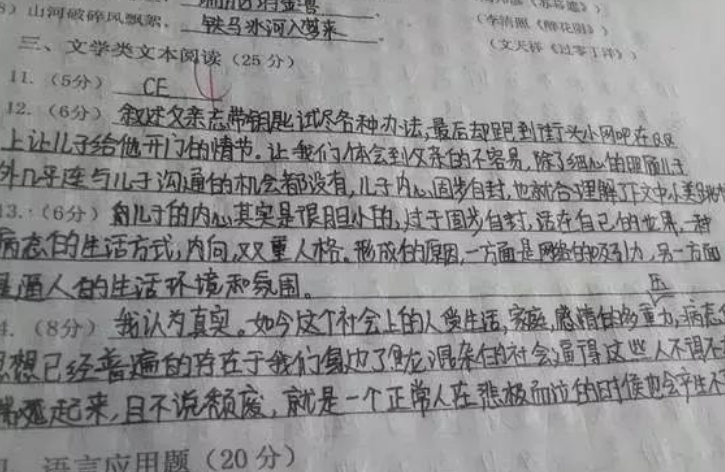 8）山河破碎风飘絮，铁马冰河入梦来。（文天祥《过零丁洋》）
三、文学类文本阅读（25分）
11.（5分）CE
12.（6分）叙述父亲忘带钥匙试尽各种办法，最后却跑到街头小网吧在QQ
上让儿子给他开门的情节。让我们体会到父亲的不容易，除了细心的照顾儿子
外几乎连与儿子沟通的机会都没有，儿子内心固步自封，也就合理解了文中小美
13.（6分）自儿子的内心其实是很胆小的，过于固步自封，活在自己的世界，一种
病态的生活方式，内向，双重人格。形成的原因，一方面是网络的吸引力，另一方面
是逼人的生活环境和氛围。
4.（8分）我认为真实。如今这个社会上的人受生活，家庭，感情的多重压力，病态
思想已经普遍的存在于我们身边了鱼龙混杂的社会逼得这些人不得不
起来，且不说颓废，就是一个正常人在悲极而泣的时候也会产生不
语言应用题（20分）